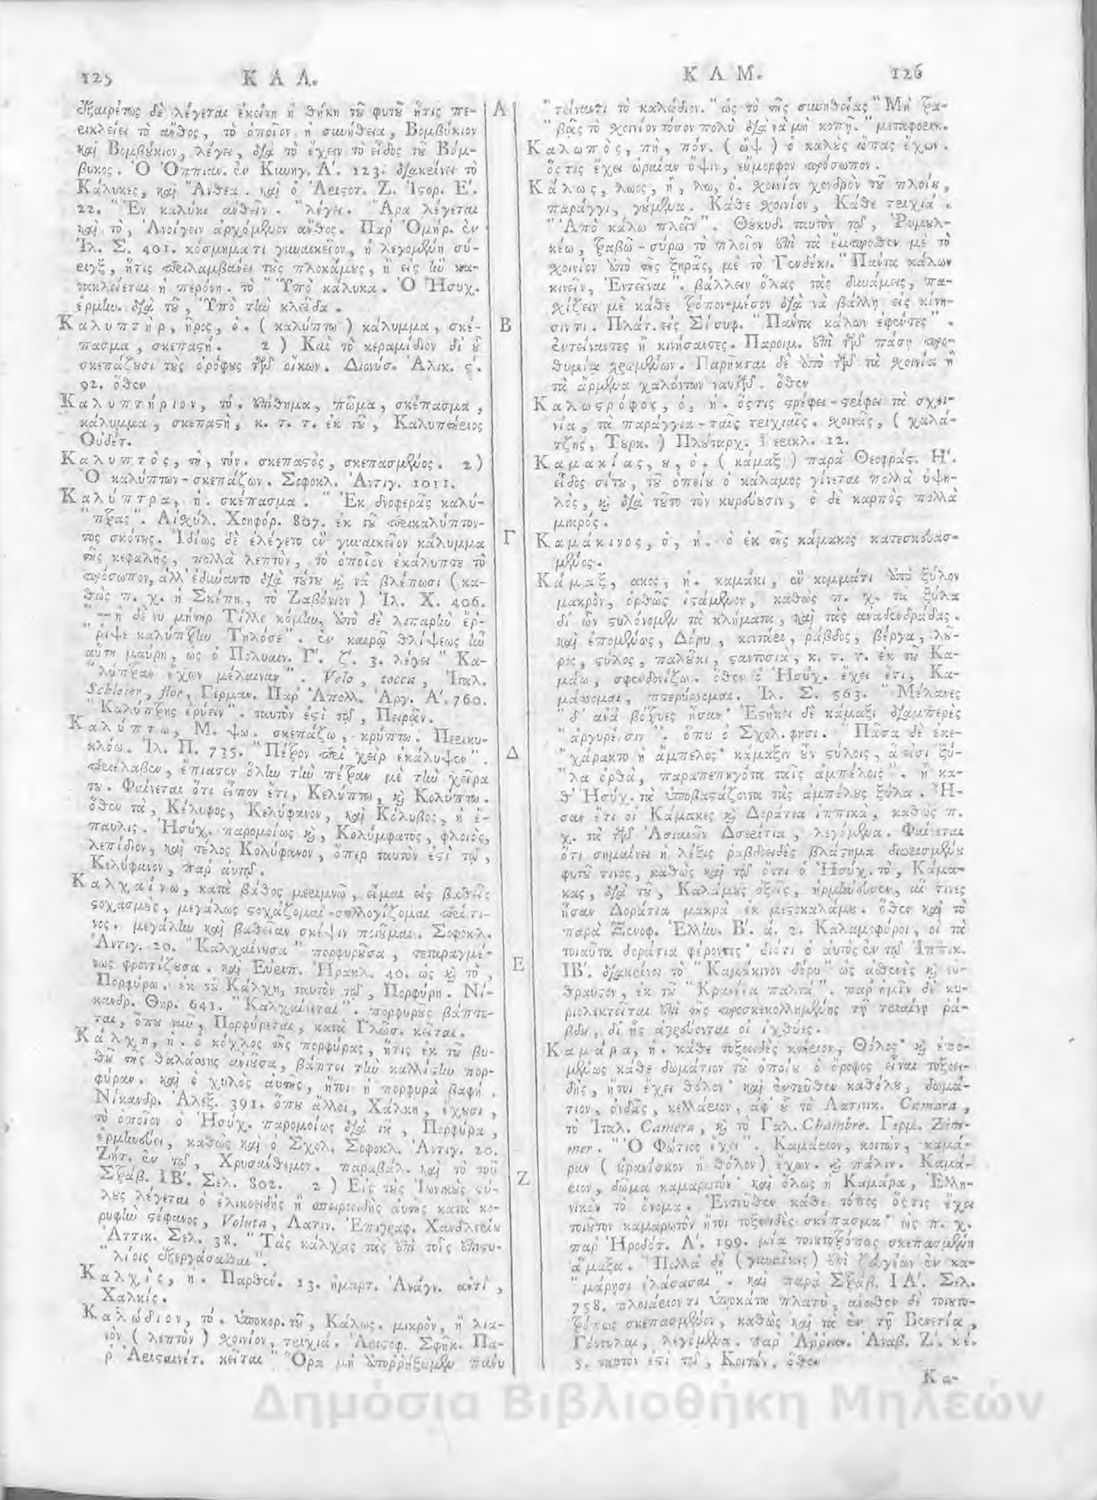 125 ΚΑΛ.
ἐξαιρέτως δὲ λέγεται ἐκείνη ἡ θήκη τοῦ φυτοῦ ἥτις πε-
ρικλείει τὸ ἄνθος, τὸ ὁποῖον ἡ συνήθεια, Βομβύκιον
καὶ Βομβύκιον, λέγει, διὰ τὸ ἔχειν τὸ εἶδος τοῦ Βόμ-
βυκος. Ὁ Ὀππιαν. ἐν Κυνηγ. Α΄. 123. διακρίνει τὸ
Κάλυκες, καὶ Ἄνθεα. καὶ ὁ Ἀριστοτ. Ζ. Ἱστορ. Ε΄.
22. "Ἐν καλύκι ἀνθεῖν. "λέγει. Ἄρα λέγεται
καὶ τὸ, Ἀνοίγειν ἀρχόμενον ἄνθος. Παρ' Ὁμήρ. ἐν
Ἰλ. Σ. 401. κόσμημά τι γυναικεῖον, ἡ λεγομένη σύ-
ριγξ, ἥτις περιλαμβάνει τοὺς πλοκάμους, ἢ εἰς ἣν κα-
τακλείεται ἡ περόνη. τὸ "Ὑπὸ κάλυκα. Ὁ Ἡσυχ.
ἑρμην. διὰ τοῦ, Ὑπὸ τὴν κλεῖδα.
Καλυπτὴρ, ῆρος, ὁ. (καλύπτω) κάλυμμα, σκέ-
πασμα, σκεπαστή. 2) Καὶ τὸ κεραμίδιον δι' οὗ
σκεπάζουσι τοὺς ὀρόφους τῶν οἴκων. Διονύσ. Ἁλικ. ς.
92. ὅθεν
Καλυπτήριον, τό. ἐπίθημα, πῶμα, σκέπασμα,
κάλυμμα, σκεπαστὴ, κ. τ. τ. ἐκ τοῦ, Καλυπτήριος
Οὐδέτ.
Καλυπτὸς, τὴ, τόν. σκεπαστὸς, σκεπασμένος. 2)
Ὁ καλύπτων - σκεπάζων. Σοφοκλ. Ἀντιγ. 1011.
Καλύπτρα, ἡ. σκέπασμα. "Ἐκ δνοφερᾶς καλύ-
"πτρας". Αἰσχύλ. Χοηφορ. 807. ἐκ τοῦ περικαλύπτον-
τος σκότους. Ἰδίως δὲ ἐλέγετο ἓν γυναικεῖον κάλυμμα
τῆς κεφαλῆς, πολλὰ λεπτὸν, τὸ ὁποῖον ἐκάλυπτε τὸ
πρόσωπον, ἀλλ' ἐδύναντο διὰ τούτου καὶ νὰ βλέπωσι (κα-
θὼς π. χ. ἡ Σκέπη, τὸ Ζαβόνιον) Ἰλ. Χ. 406.
"--ἡ δέ νυ μήτηρ Τίλλε κόμην, ἀπὸ δὲ λιπαρὴν ἔρ-
ριψε καλύπτρην Τηλόσε". ἐν καιρῷ θλίψεως ἦν
αὕτη μαύρη, ὡς ὁ Πολυαιν. Γ΄. ζ΄. 3. λέγει "Κα-
"λύπτραν ἔχων μέλαιναν". Velo, cocca, Ἰταλ.
Schleier, flor, Γερμαν. Παρ' Ἀπολλ. Ἀργ. Α΄. 760.
"Καλύπτρης ἐρύειν". ταυτὸν ἐστὶ τῷ, Πειρᾶν.
Καλύπτω, Μ. ψω. σκεπάζω, κρύπτω. Περικυ-
κλόω. Ἰλ. Π. 735. "Πέτρον περὶ χεὶρ ἐκάλυψεν".
περιέλαβεν, ἔπιασεν ὅλην τὴν πέτραν μὲ τὴν χεῖρα
του. Φαίνεται ὅτι εἶπον ἔτι, Κελύπτω, καὶ Κολύπτω.
ὅθεν τὰ, Κέλυφος, Κελύφανον, καὶ Κόλυβος, ἡ ἔ-
παυλις. Ἡσυχ. παρομοίως καὶ, Κολύμφατος, φλοιὸς,
λεπίδιον, καὶ τέλος Κολύφανον, ὅπερ ταυτόν ἐστὶ τῷ,
Κελύφανον, παρ' αὐτῷ.
Καλχαίνω, κατὰ βάθος μεριμνῶ, εἶμαι εἰς βαθεῖς
στοχασμοὺς, μεγάλως στοχάζομαι - συλλογίζομαι περί τι-
νος. μεγάλην καὶ βαθεῖαν σκέψιν ποιοῦμαι. Σοφοκλ.
Ἀντιγ. 20. "Καλχαίνουσα" πορφυροῦσα, τεταραγμέ-
νως φροντίζουσα. καὶ Εὐριπ. Ἡρακλ. 40. ὡς καὶ τὸ,
Πορφύρω. ἐκ τοῦ Κάλχη, ταυτὸν τῷ, Πορφύρη. Νί-
κανδρ. Θηρ. 641. "Καλχαίνεται". πορφυροῦς βάπτε-
ται, ὅπου νῦν, Πορφύρεται, κατὰ Γλῶσ. κεῖται.
Κάλχη, ἡ. ὁ κόχλος τῆς πορφύρας, ἥτις ἐκ τοῦ βυ-
θοῦ τῆς θαλάσσης ἀνιοῦσα, βάπτει τὴν καλλίστην πορ-
φύραν. καὶ ὁ χυλὸς αὐτῆς, ἤτοι ἡ πορφυρᾶ βαφή.
Νίκανδρ. Ἀλεξ. 391. ὅπου ἄλλοι, Χάλκη, ἔχουσι,
τὸ ὁποῖον ὁ Ἡσύχ. παρομοίως διὰ τοῦ, Πορφύρα,
ἑρμηνεύει, καθὼς καὶ ὁ Σχολ. Σοφοκλ. Ἀντιγ. 20.
Ζητ. ἐν τῷ, Χρυσανθεμον. παραβάλ. καὶ τὸ τοῦ
Στράβ. ΙΒ΄. Σελ. 802. 2) Εἰς τοὺς Ἰωνικοὺς στύ-
λους λέγεται ὁ ἑλικοειδὴς ἢ σπειροειδὴς αὐτῆς κατὰ κο-
ρυφὴν στέφανος, Voluta, Λατιν. Ἐπιγραφ. Χανδλερίου
Ἀττικ. Σελ. 38. "Τὰς κάλχας τὰς ἐπὶ τοῖς ἐπιστυ-
"λίοις ἐξεργάσασθαι".
Καλχὶς, ἡ. Παρθέν. 13. ἡμαρτ. Ἀνάγν. ἀντὶ,
Χαλκίς.
Καλώδιον, τό. ὑποκορ. τοῦ, Κάλως. μικρὸν, ἢ λια-
νὸν (λεπτὸν) σχοινίον, τριχιά. Ἀριστοφ. Σφηκ. Πα-
ρ' Ἀρισταινέτ. κεῖται "Ὅρα μὴ ἀπορρήξωμεν πάνυ
Α
Β
Γ
Δ
Ε
Ζ
ΚΑΜ. 126
"τείναντι τὸ καλώδιον." ὡς τὸ τῆς συνηθείας "Μὴ τρα-
"βᾷς τὸ σχοινίον τόσον πολὺ διὰ νὰ μὴ κοπῇ." μεταφορικ.
Καλωπὸς, πὴ, πόν. (ὢψ) ὁ καλοὺς ὦπας ἔχων.
ὅστις ἔχει ὡραίαν ὄψιν, εὔμορφον πρόσωπον.
Κάλως, λωος, ἢ, λω, ὁ. σχοινίον χονδρὸν τοῦ πλοίου,
παράγγι, γούμενα. Κάθε σχοινίον, Κάθε τριχιά.
"Ἀπὸ κάλω πλεῖν". Θουκυδ. ταυτὸν τῷ, Ῥυμουλ-
κέω, τραβῶ - σύρω τὸ πλοῖον ἐπὶ τὰ ἔμπροσθεν μὲ τὸ
σχοινίον ἀπὸ τῆς ξηρᾶς, μὲ τὸ Γονδέκι. "Πάντα κάλων
κινεῖν, Ἐντείνειν". βάλλειν ὅλας τὰς δυνάμεις, πα-
σχίζειν μὲ κάθε τρόπον - μέσον διὰ νὰ βάλλῃ εἰς κίνη-
σίν τι. Πλάτ. εἰς Σίσυφ. "Πάντα κάλων ἐφέντες".
ἐντείναντες ἢ κινήσαντες. Παροιμ. ἐπὶ τῶν πάσῃ προ-
θυμίᾳ χρωμένων. Παρῆκται δὲ ἀπὸ τῶν τὰ σχοινία ἢ
τὰ ἄρμενα χαλόντων ναυτῶν. ὅθεν
Καλωστρόφος, ὁ, ἡ. ὅστις στρέφει - στρίφει τὰ σχοι-
νία, τὰ παράγγια - ταῖς τριχιαῖς. σχοινᾶς, (χαλά-
τζης, Τουρκ.) Πλούταρχ. Περικλ. 12.
Καμακίας, ου, ὁ. (κάμαξ) παρὰ Θεοφράστ. Η΄.
εἶδος σίτου, τοῦ ὁποίου ὁ κάλαμος γίνεται πολλὰ ὑψη-
λὸς, καὶ διὰ τοῦτο τὸν κυρεύουσιν, ὁ δὲ καρπὸς πολλὰ
μικρός.
Καμάκινος, ὁ, ἡ. ὁ ἐκ τῆς κάμακος κατεσκευασ-
μένος.
Κάμαξ, ακος, ἡ. καμάκι, ἓν κομμάτι ἀπὸ ξύλον
μακρὸν, ὀρθῶς ἱστάμενον, καθὼς π. χ. τὰ ξύλα
δι' ὧν στυλόνομεν τὰ κλήματα, καὶ τὰς ἀναδενδράδας.
καὶ ἑπομένως, Δόρυ, κοντάρι, ράβδος, βέργα, λοῦ-
ρος, στύλος, παλούκι, σαντσιὰ, κ. τ. τ. ἐκ τοῦ Κα-
μάω, σφενδονίζω. ὅθεν ὁ Ἡσύχ. ἔχει ἔτι, Κα-
μάσσομαι, πτερύσσομαι. Ἰλ. Σ. 563. "Μέλανες
"δ' ἀνὰ βότρυες ἦσαν· Ἑστήκει δὲ κάμαξι διαμπερὲς
"ἀργυρέῃσιν". ὅπου ὁ Σχολ. φησι. "Πᾶσα δὲ ἐκε-
"χάρακτο ἡ ἄμπελος κάμαξιν ἐν ξύλοις, ἅ εἰσι ξύ-
"λα ὀρθὰ, παραπεπηγότα ταῖς ἀμπέλοις". ἢ κα-
θ' Ἡσύχ. τὰ ὑποβαστάζοντα τὰς ἀμπέλους ξύλα. Ἦ-
σαν ἔτι οἱ Κάμακες καὶ Δοράτια ἱππικὰ, καθὼς π.
χ. τὰ τῶν Ἀσιανῶν Δσερίτια, λεγόμενα. Φαίνεται
ὅτι σημαίνει ἡ λέξις ραβδοειδὲς βλάστημα διωρισμένου
φυτοῦ τινος, καθὼς καὶ τῷ ὄντι ὁ Ἡσύχ. τὸ, Κάμα-
κας, διὰ τοῦ, Καλάμους ὀξεῖς, ἡρμήνευσεν, αἵ τινες
ἦσαν Δοράτια μακρὰ ἐκ μιστοκαλάμου. ὅθεν καὶ τὸ
παρὰ Ξενοφ. Ἑλλην. Β΄. δ. 2. Καλαμοφόροι, οἱ τὰ
τοιαῦτα δοράτια φέροντες· διότι ὁ αὐτὸς ἐν τῷ Ἱππικ.
ΙΒ΄. διακρίνει τὸ "Καμάκινον δόρυ" ὡς ἀσθενὲς καὶ εὔ-
θραυστον, ἐκ τοῦ "Κρανέϊα παλτά". παρ' ἡμῖν δὲ κυ-
ριολεκτεῖται ἐπὶ τῆς προσκεκολλημένης τῇ τριαίνῃ ρά-
βδου, δι' ἧς ἀγρεύονται οἱ ἰχθύες.
Καμάρα, ἡ. κάθε τοξοειδὲς κτίριον, Θόλος· καὶ ἑπο-
μένως κάθε δωμάτιον τοῦ ὁποίου ὁ ὄροφος εἶναι τοξοει-
δὴς, ἤτοι ἔχει θόλον· καὶ ἐντεῦθεν καθόλου, δωμά-
τιον, ὀνδᾶς, κελλάριον, ἀφ' οὗ τὸ Λατινικ. Camara,
τὸ Ἰταλ. Camera, καὶ τὸ Γαλ. Chambre. Γερμ. Zim-
mer. "Ὁ Φώτιος ἔχει". Καμάριον, κοιτὼν, καμά-
ραν (οὐρανίσκον ἢ θόλον) ἔχων. καὶ πάλιν. Καμά-
ριον, δῶμα καμαρωτόν· καὶ ὅλως ἡ Καμάρα, Ἑλλη-
νικὸν τὸ ὄνομα. Ἐντεῦθεν κάθε τόπος ὅστις ἔχει
τοιοῦτον καμαρωτὸν ἤτοι τοξοειδὲς σκέπασμα· ὡς π. χ.
παρ' Ἡροδότ. Α΄. 199. μία τοιουτοτρόπως σκεπασμένη
ἅμαξα. "Πολλαὶ δὲ (γυναῖκες) ἐπὶ ζευγέων ἐν κα-
"μάρῃσι ἐλάσασαι". καὶ παρὰ Στράβ. ΙΑ΄. Σελ.
758. πλοιάριόν τι ὑποκάτω πλατὺ, ἄνωθεν δὲ τοιουτο-
τρόπως σκεπασμένον, καθὼς καὶ τὰ ἐν τῇ Βενετίᾳ,
Γόντολαι, λεγόμενα. παρ' Ἀρριαν. Ἀναβ. Ζ΄. κέ.
5. ταυτὸν ἐστὶ τῷ, Κοιτών. ὅθεν
Κα-
Δημόσια Βιβλιοθήκη Μηλεών